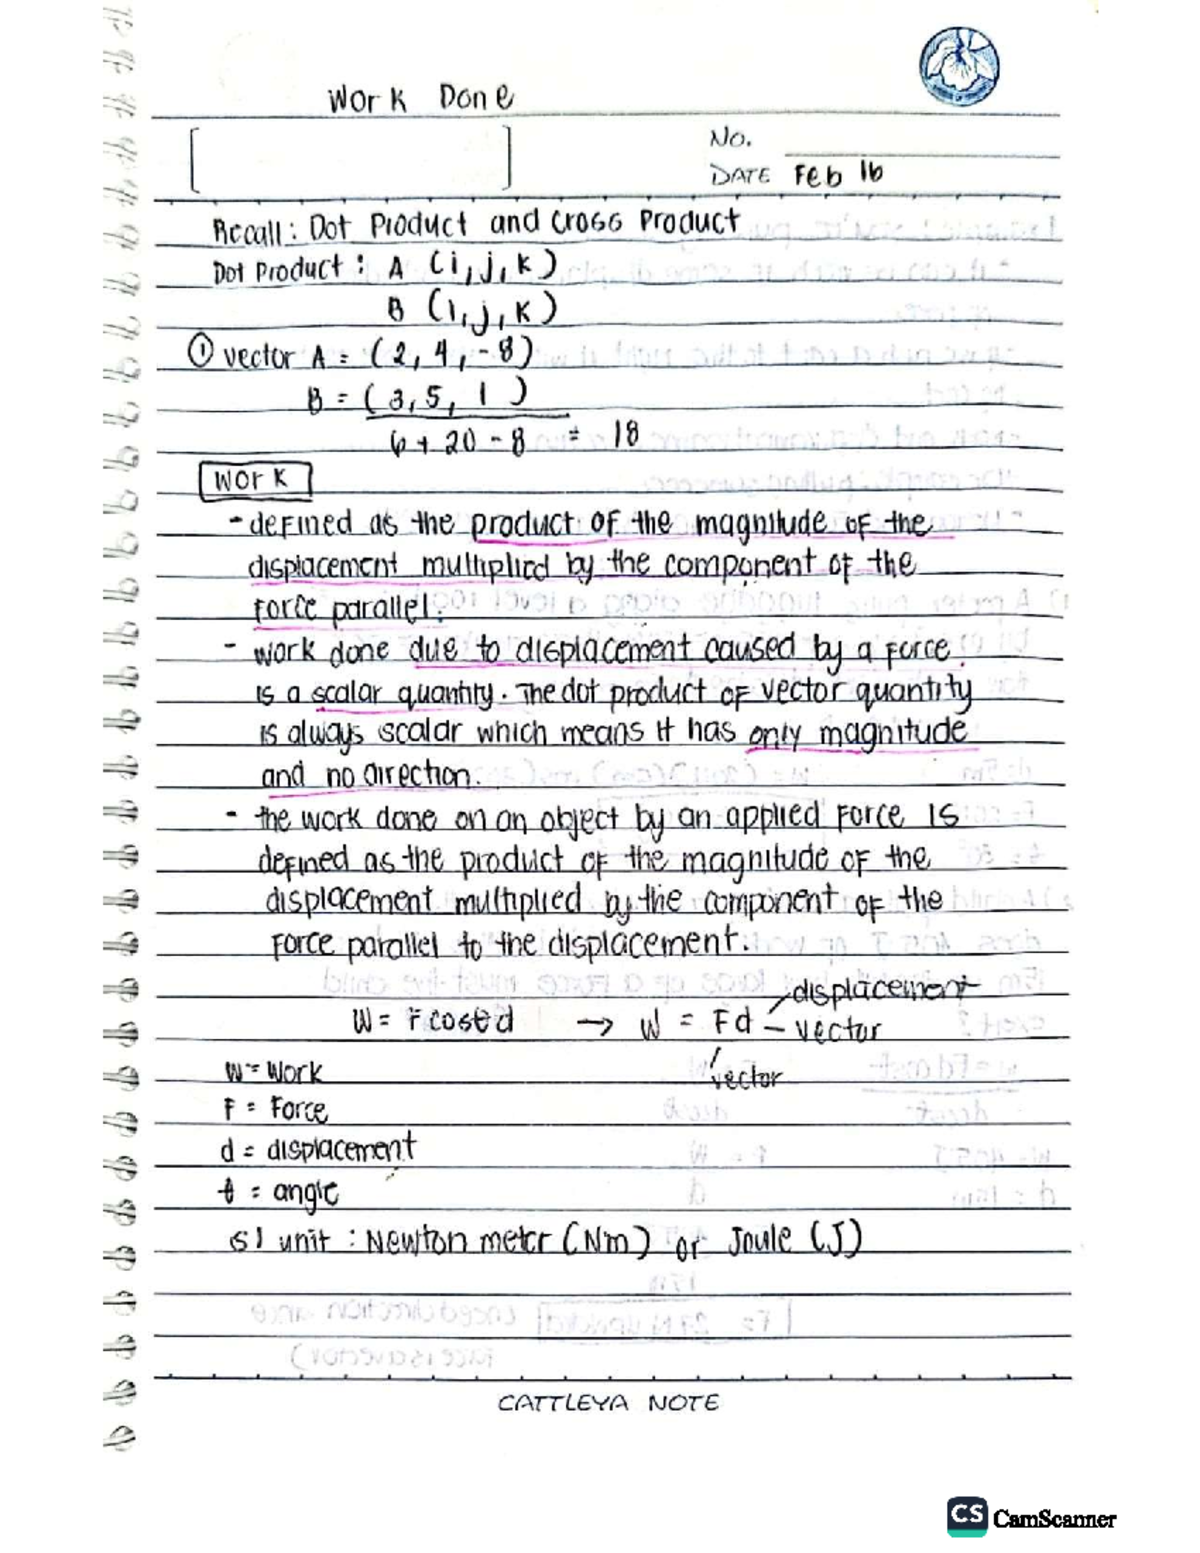 Work Done
No.
DATE Feb 16
Recall: Dot Product and Cross Product
Dot Product: A (i, j, k)
B (i, j, k)
① vector A = (2, 4, -8)
B = (3, 5, 1)
6 + 20 - 8 = 18
Work
- defined as the product of the magnitude of the
displacement multiplied by the component of the
force parallel.
- work done due to displacement caused by a force
is a scalar quantity. The dot product of vector quantity
is always scalar which means it has only magnitude
and no direction.
- the work done on an object by an applied force is
defined as the product of the magnitude of the
displacement multiplied by the component of the
force parallel to the displacement.
displacement
W = F cosθ d → W = Fd - vector
vector
W = Work
F = Force
d = displacement
θ = angle
SI unit : Newton meter (Nm) or Joule (J)
CATTLEYA NOTE
CS CamScanner